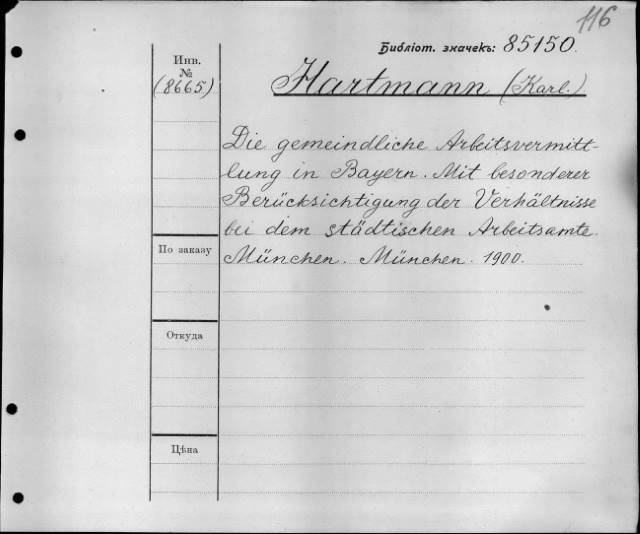 116
Библіот. значекъ: 85150.
Инв.
№
(8665)
Hartmann (Karl.)
Die gemeindliche Arbeitsvermitt-
lung in Bayern. Mit besonderer
Berücksichtigung der Verhältnisse
bei dem städtischen Arbeitsamte
München. München. 1900.
По заказу
Откуда
Цѣна